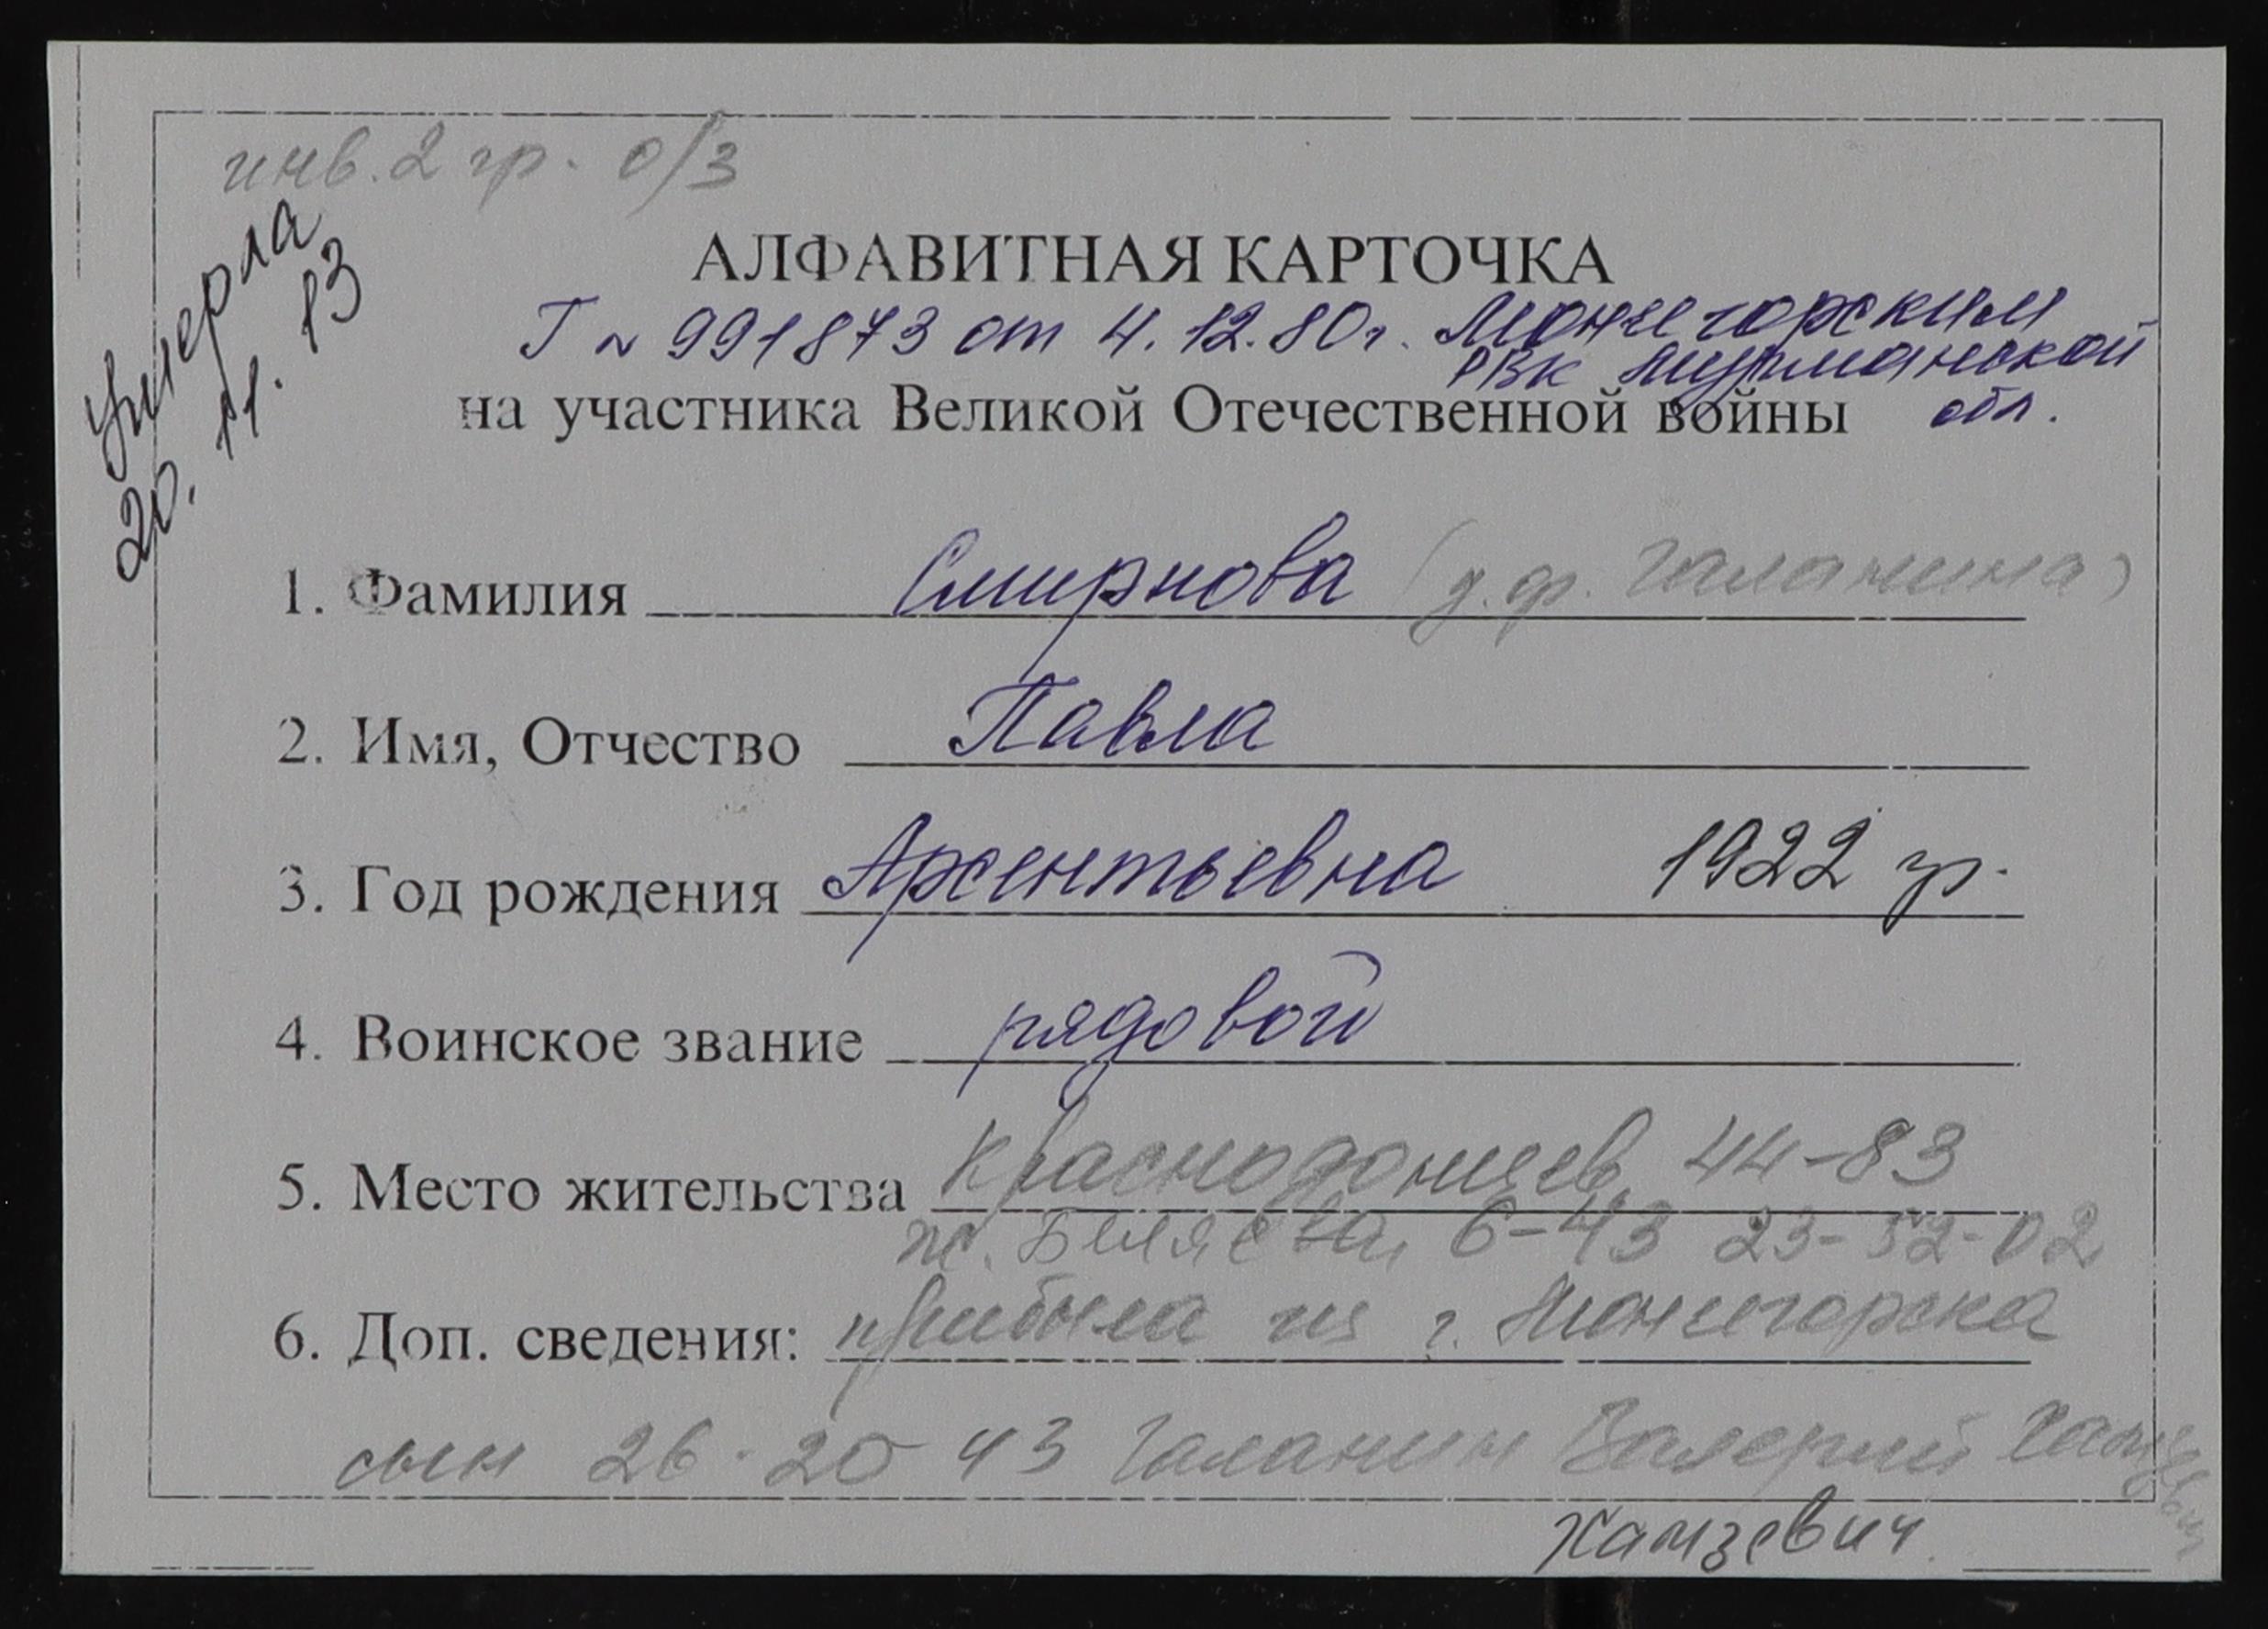 инв. 2 гр. о/з
Умерла
20. 11. 13
АЛФАВИТНАЯ КАРТОЧКА
Г № 991873 от 4.12.80г. Мончегорским
РВК Мурманской
обл.
на участника Великой Отечественной войны
1. Фамилия Смирнова (д.ф. Галанина)
2. Имя, Отчество Павла
3. Год рождения Арсентьевна 1922 гр.
4. Воинское звание рядовой
5. Место жительства Краснодонцев 44-83
ж. Беляева, 6-43 23-52-02
6. Доп. сведения: прибыла из г. Мончегорска
сын 26-20 43 Галанин Валерий Хамзевич
Хамзевич